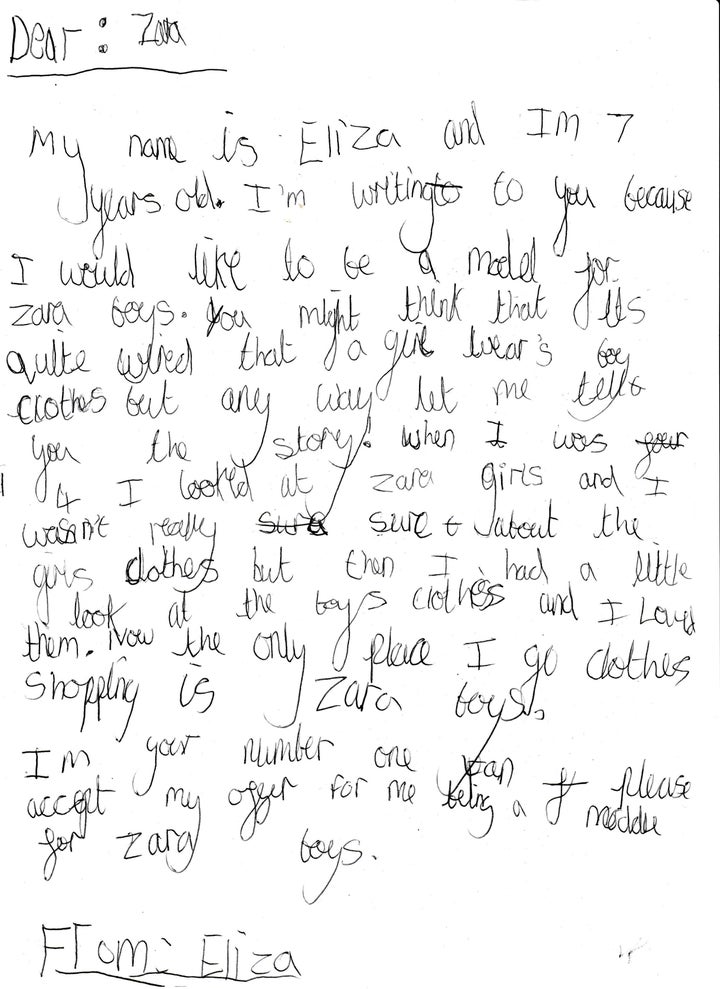 Dear: Zara
My name is Eliza and Im 7
years old. I'm writing to to you because
I would like to be a model for
zara boys. You might think that its
quite wired that a girl wear's boy
clothes but any way let me tell
you the story! when I was your
4 I look'd at zara girls and I
wasn't really sure sure about the
girls clothes but then I had a little
look at the boys clothes and I Loved
them. Now the only place I go clothes
shopping is Zara boys.
Im your number one fan please
accept my offer for me being a moddle
for zara boys.
From: Eliza